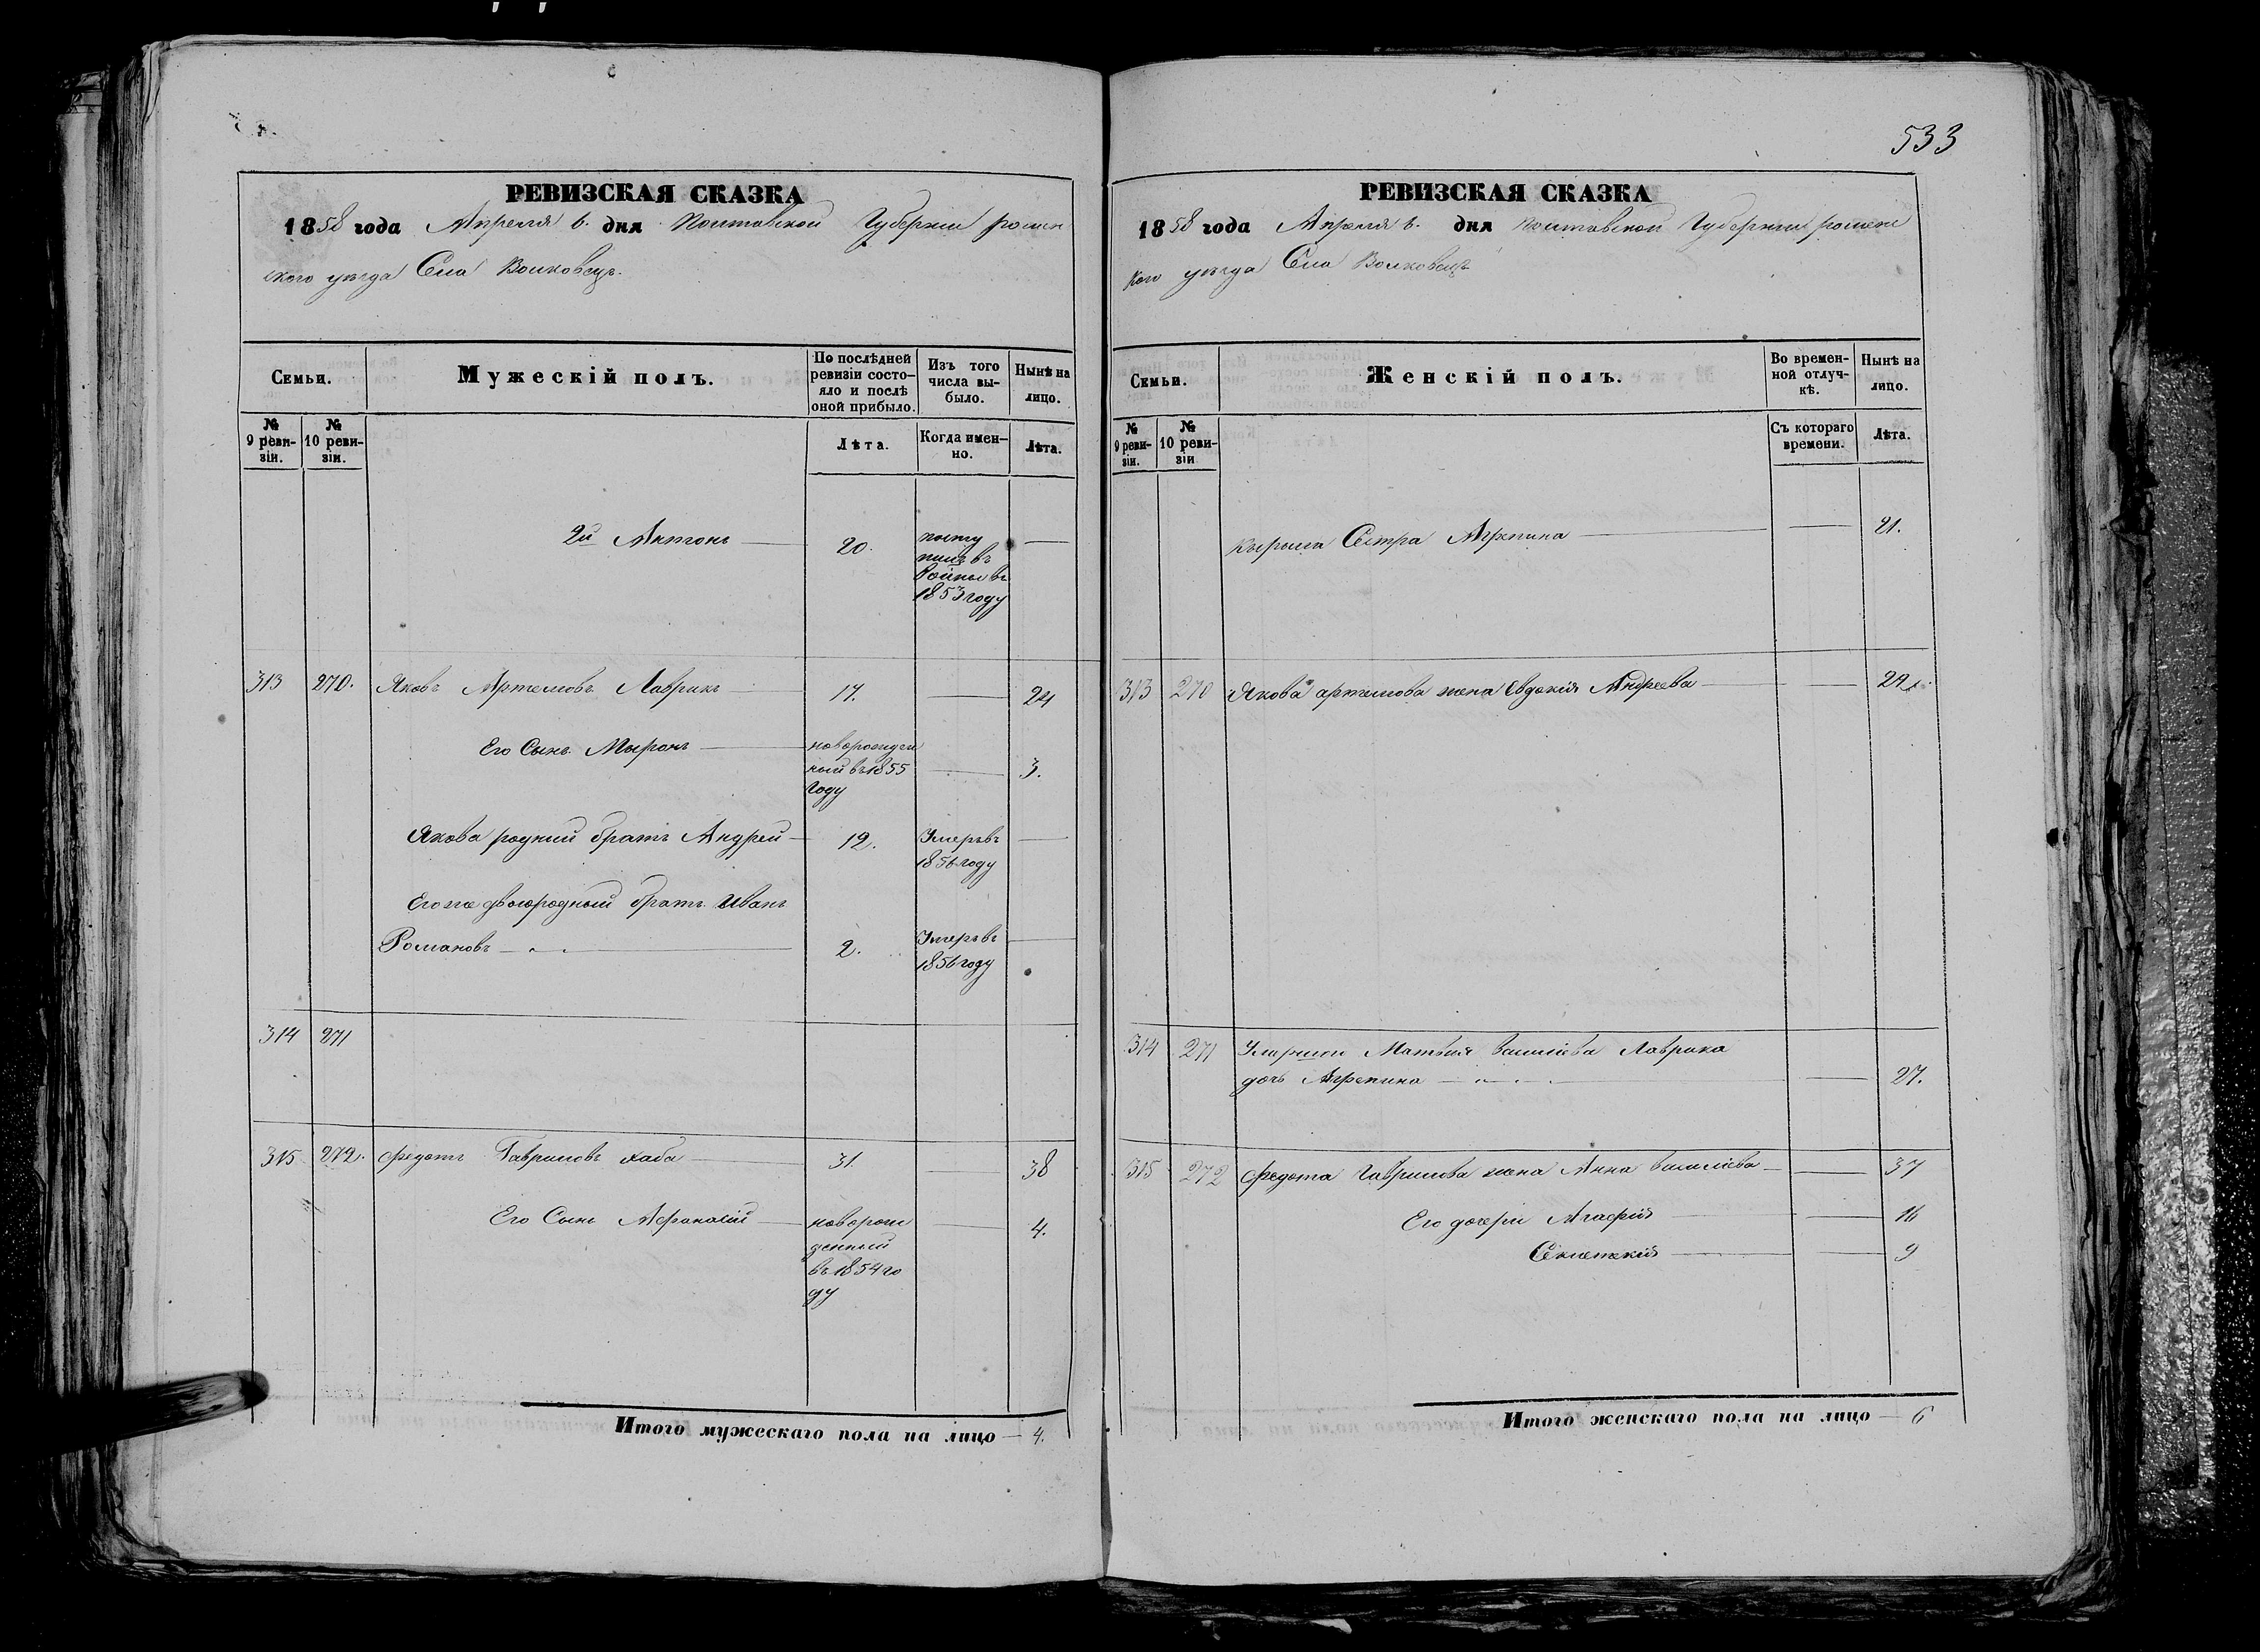 533
РЕВИЗСКАЯ СКАЗКА
1858 года Апреля 6. дня Полтавской Губернии ромен
ского уезда Села Волковец.
Семьи.
Мужескій полъ.
По послѣдней ревизіи состо-
яло и послѣ
оной прибыло.
Изъ того
числа вы-
было.
Нынѣ на
лицо.
№
9 реви-
зіи.
№
10 реви-
зіи.
Лѣта.
Когда имен-
но.
Лѣта.
2й Антонъ 20.
посту
пилъ в
1853 году
313 270. Яковъ Артемовъ Лаврикъ 17. 24
Его Сынъ Миронъ новорожден
ный въ 1855 3.
году
Якова родний братъ Андрей 12. Умеръ въ
1856 году
Его же двоюродный братъ Иванъ
Романовъ 2. Умеръ въ
1856 году
314 271
315 272. Федотъ Гавриловъ 31. 38
Его Сынъ Афанасій новорож 4.
денный
въ 1854 го
ду
Итого мужескаго пола на лицо 4.
РЕВИЗСКАЯ СКАЗКА
1858 года Апреля 6. дня Полтавской Губернии ромен
кого уезда Села Волковец
Семьи.
Женскій полъ.
Во времен-
ной отлуч-
кѣ.
Нынѣ на
лицо.
№
9 реви-
зіи.
№
10 реви-
зіи
Съ котораго
времени.
Лѣта.
Сестра Агрепина 21.
313 270 Якова артемова жена Евдокія Андреева
314 271 Матвия василіева Лаврика
дочь Агрепина 27.
315 272 Федота Гаврилова жена Анна василіева 37
Его дочери Агафія 16
9
Итого женскаго пола на лицо 6